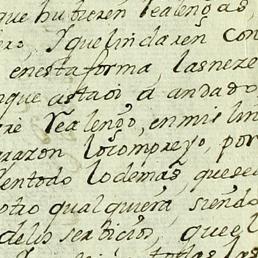 que hubieren Realengas,
ero. Y que lindaren con
en esta forma, las nese
nque astaoi á andado
Realengo, en mis lin
razon lo compreyo, por
en todo lo demas, que se
otro qual quiera, siendo
de los serbicios, que el